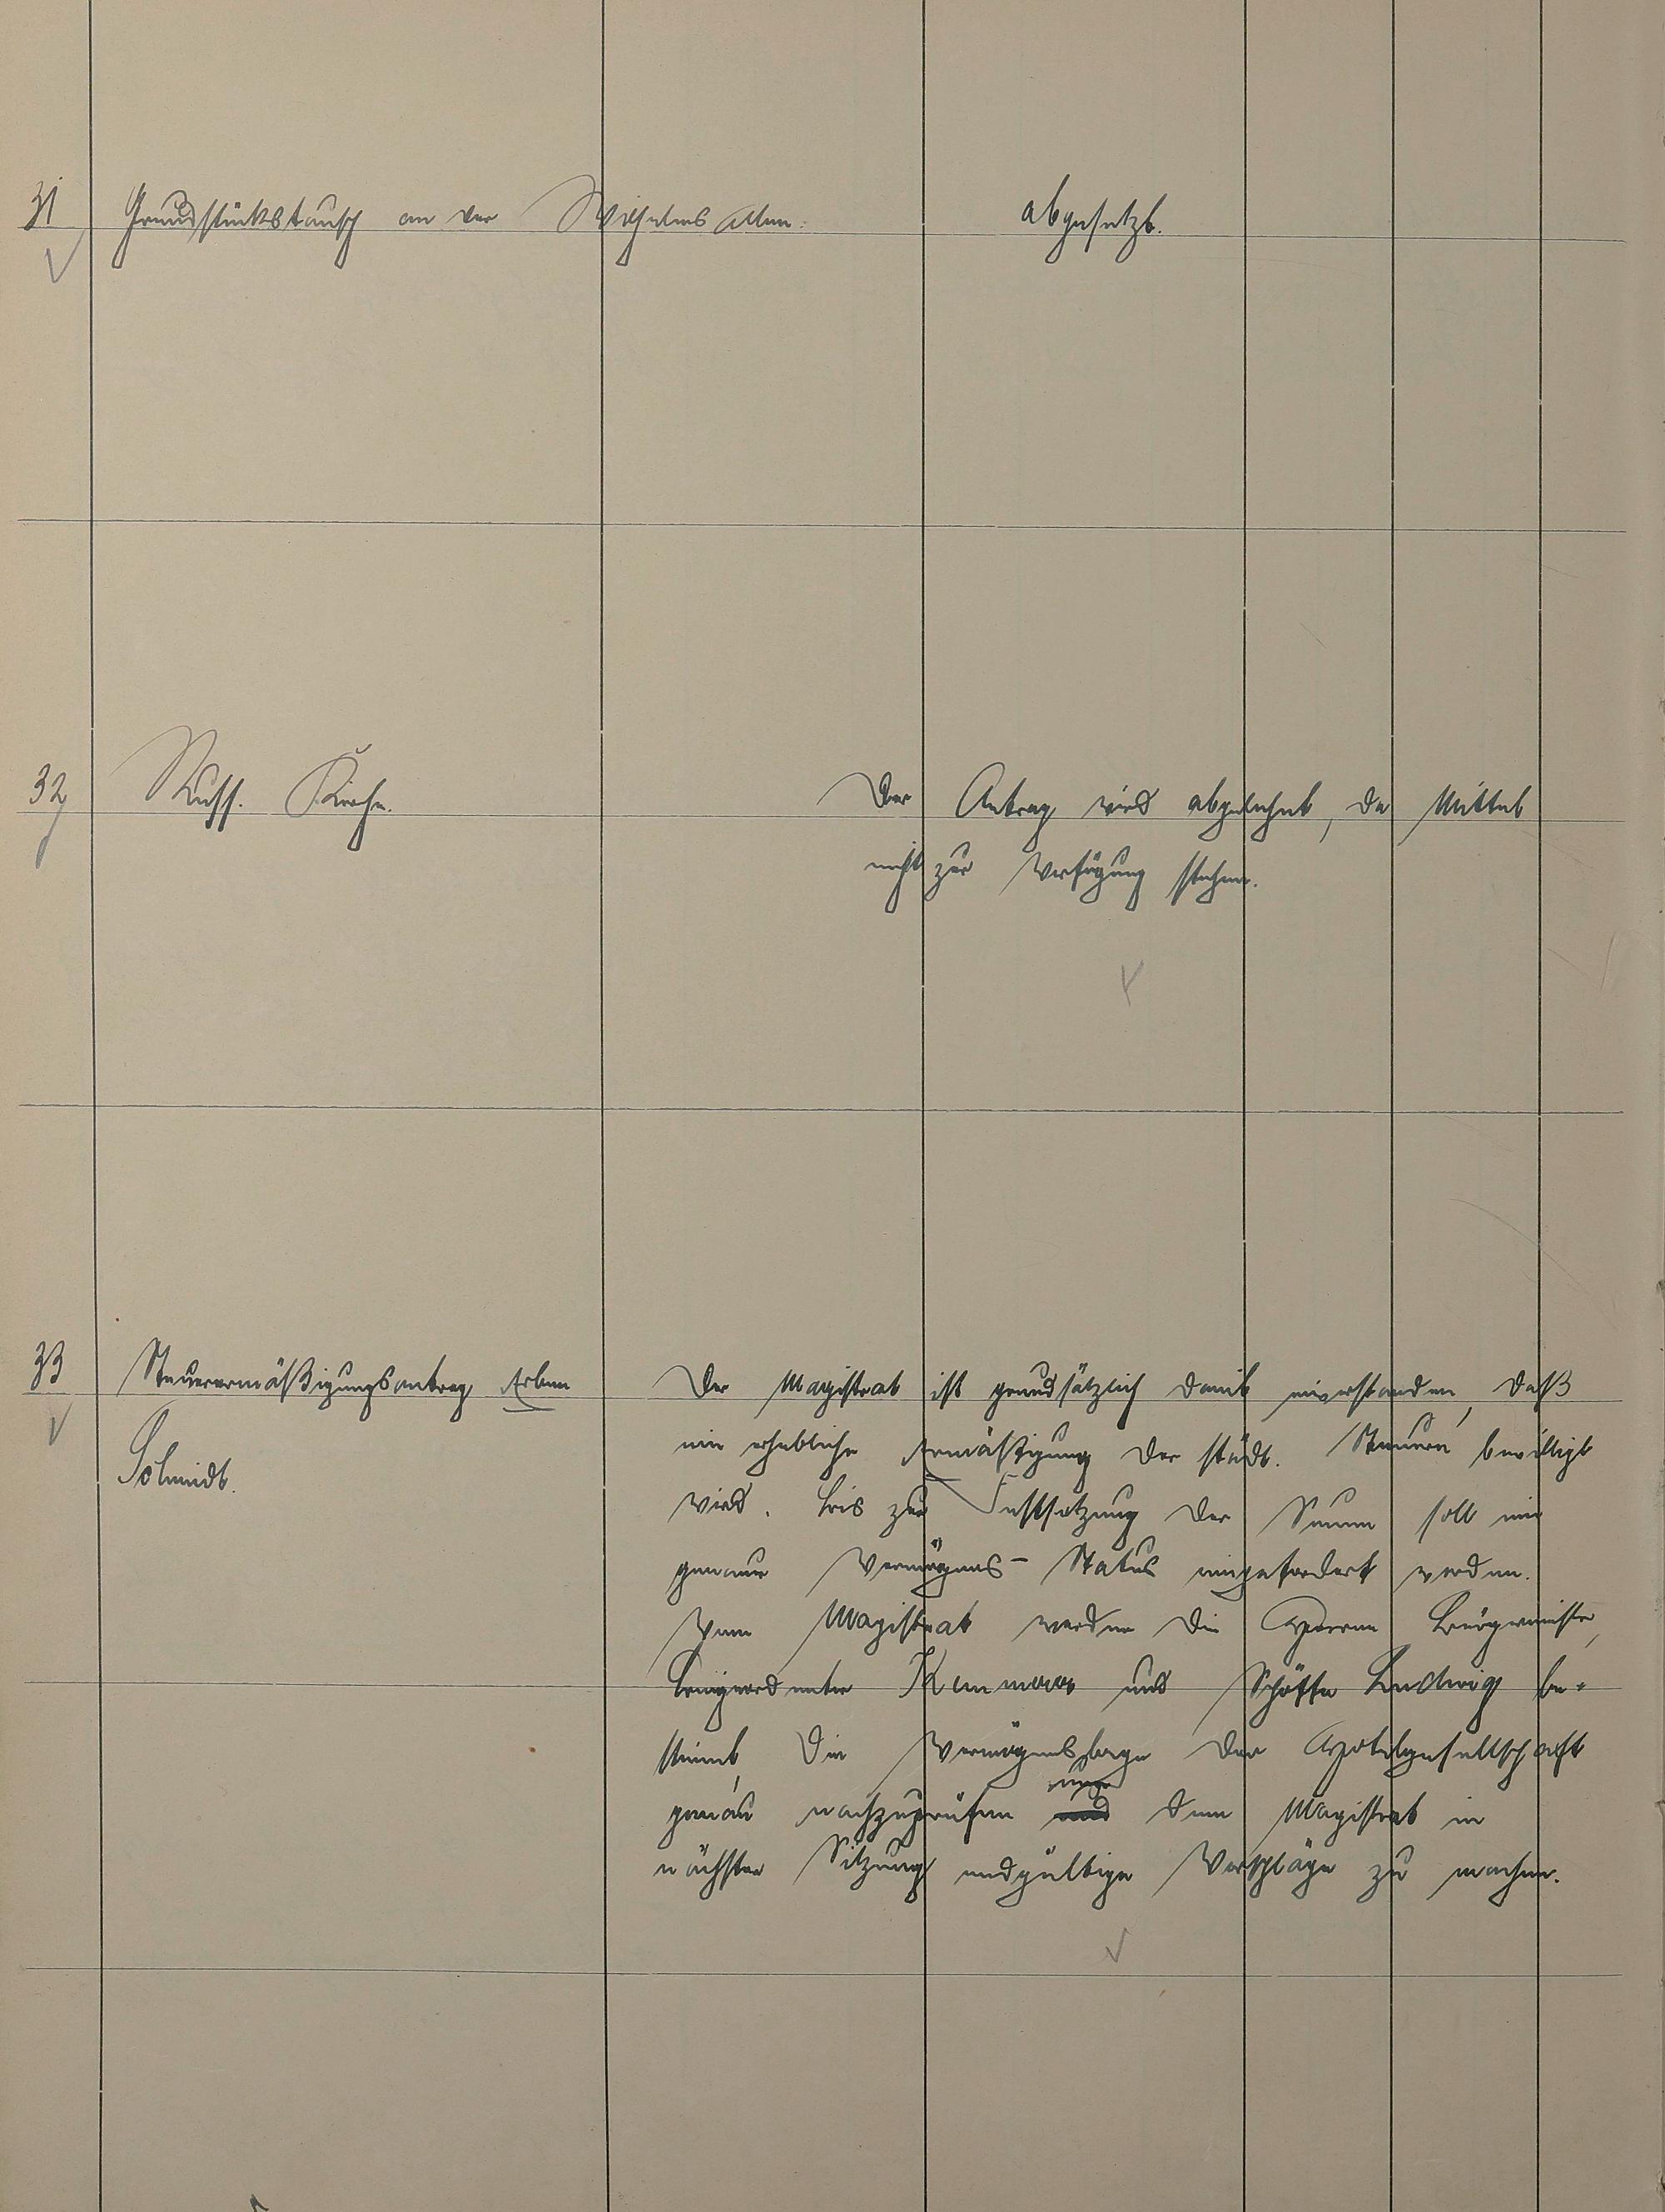 31 Grundstückstausch an der Wilhelms Allee. abgesetzt.
32 Russ. Kirche. Der Antrag wird abgelehnt, da Mittel
nicht zur Verfügung stehen.
33 Steuerermäßigungsantrag Erben
Schmidt.
Der Magistrat ist grundsätzlich damit einverstanden, daß
eine erhebliche Ermäßigung der städt. Steuern bewilligt
wird. Bis zur Festsetzung der Summe soll ein
genauer Vermögens-Status eingefordert werden.
Vom Magistrat werden die Herren Bürgermeister,
Beigeordneter und Schöffe Ludwig be-
stimmt, die Vermögenslage der Hotelgesellschaft
genau nachzuprüfen und dem Magistrat in
nächster Sitzung endgültige Vorschläge zu machen.